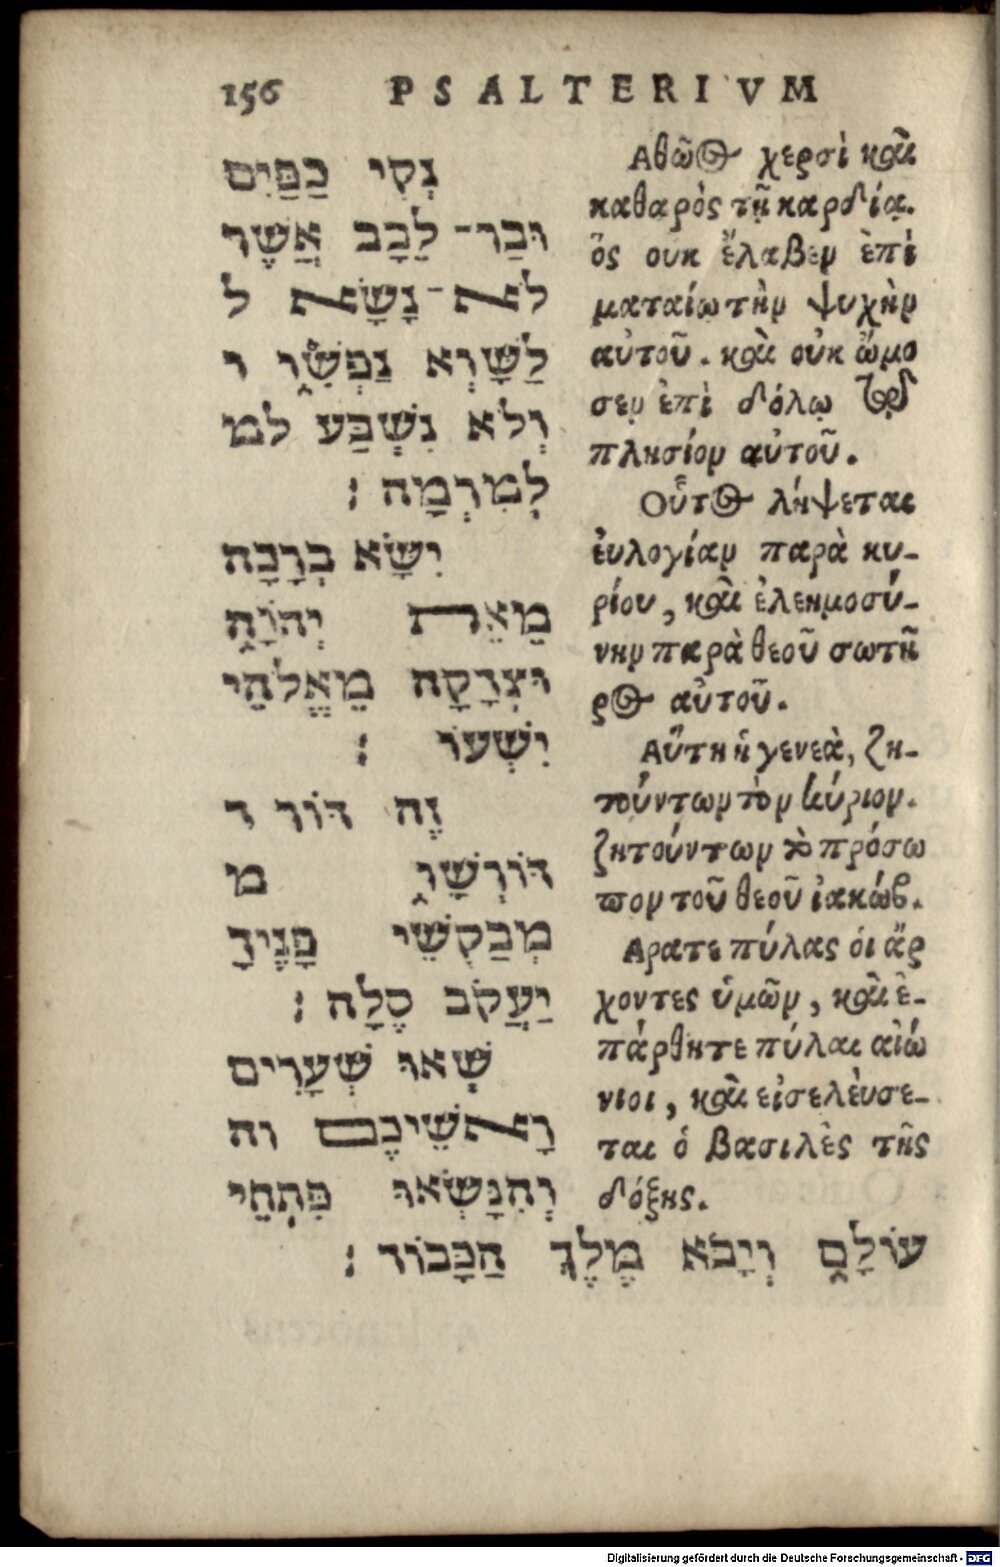 156 PSALTERIVM
נְקִי כַפַּיִם
וּבַר־ לֵבָב אֲשֶׁר
לֹא־נָשָׂא ל
לַשָּׁוְא נַפְשִׁ֑וֹ ו
וְלֹא נִשְׁבַּע למ
לְמִרְמָה :
יִשָּׂא בְרָכָה
מֵאֵת יְהוָ֑ה
וּצְדָקָה מֵאֱלֹהֵי
יִשְׁעוֹ :
זֶה דּוֹר ד
דּוֹרְשָׁ֑ו מ
מְבַקְשֵׁי פָנֶיךָ
יַעֲקֹב סֶלָה :
שְׂאוּ שְׁעָרִים
רָאשֵׁיכֶם וה
וְהִנָּשְׂאוּ פִּתְחֵי
עוֹלָ֑ם וְיָבֹא מֶלֶךְ הַכָּבוֹד :
Αθῶος χερσὶ καὶ
καθαρὸς τῇ καρδίᾳ.
ὃς ουκ ἔλαβεν ἐπὶ
ματαίῳ τὴν ψυχὴν
αὐτοῦ. καὶ οὐκ ὤμο
σεν ἐπὶ δόλῳ τῷ
πλησίον αὐτοῦ.
Οὗτος λήψεται
ἐυλογίαν παρὰ κυ-
ρίου, καὶ ἐλεημοσύ-
νην παρὰ θεοῦ σωτῆ
ρος αὐτοῦ.
Αὕτη ἡ γενεὰ, ζη-
τούντων τὸν κύριον.
ζητούντων τὸ πρόσω
πον τοῦ θεοῦ ἰακώβ.
Αρατε πύλας ὁι ἄρ
χοντες ὑμῶν, καὶ ἐ-
πάρθητε πύλαι αἰώ
νιοι, καὶ εἰσελέυσε-
ται ὁ βασιλὲς τῆς
δόξης.
Digitalisierung gefördert durch die Deutsche Forschungsgemeinschaft - DFG